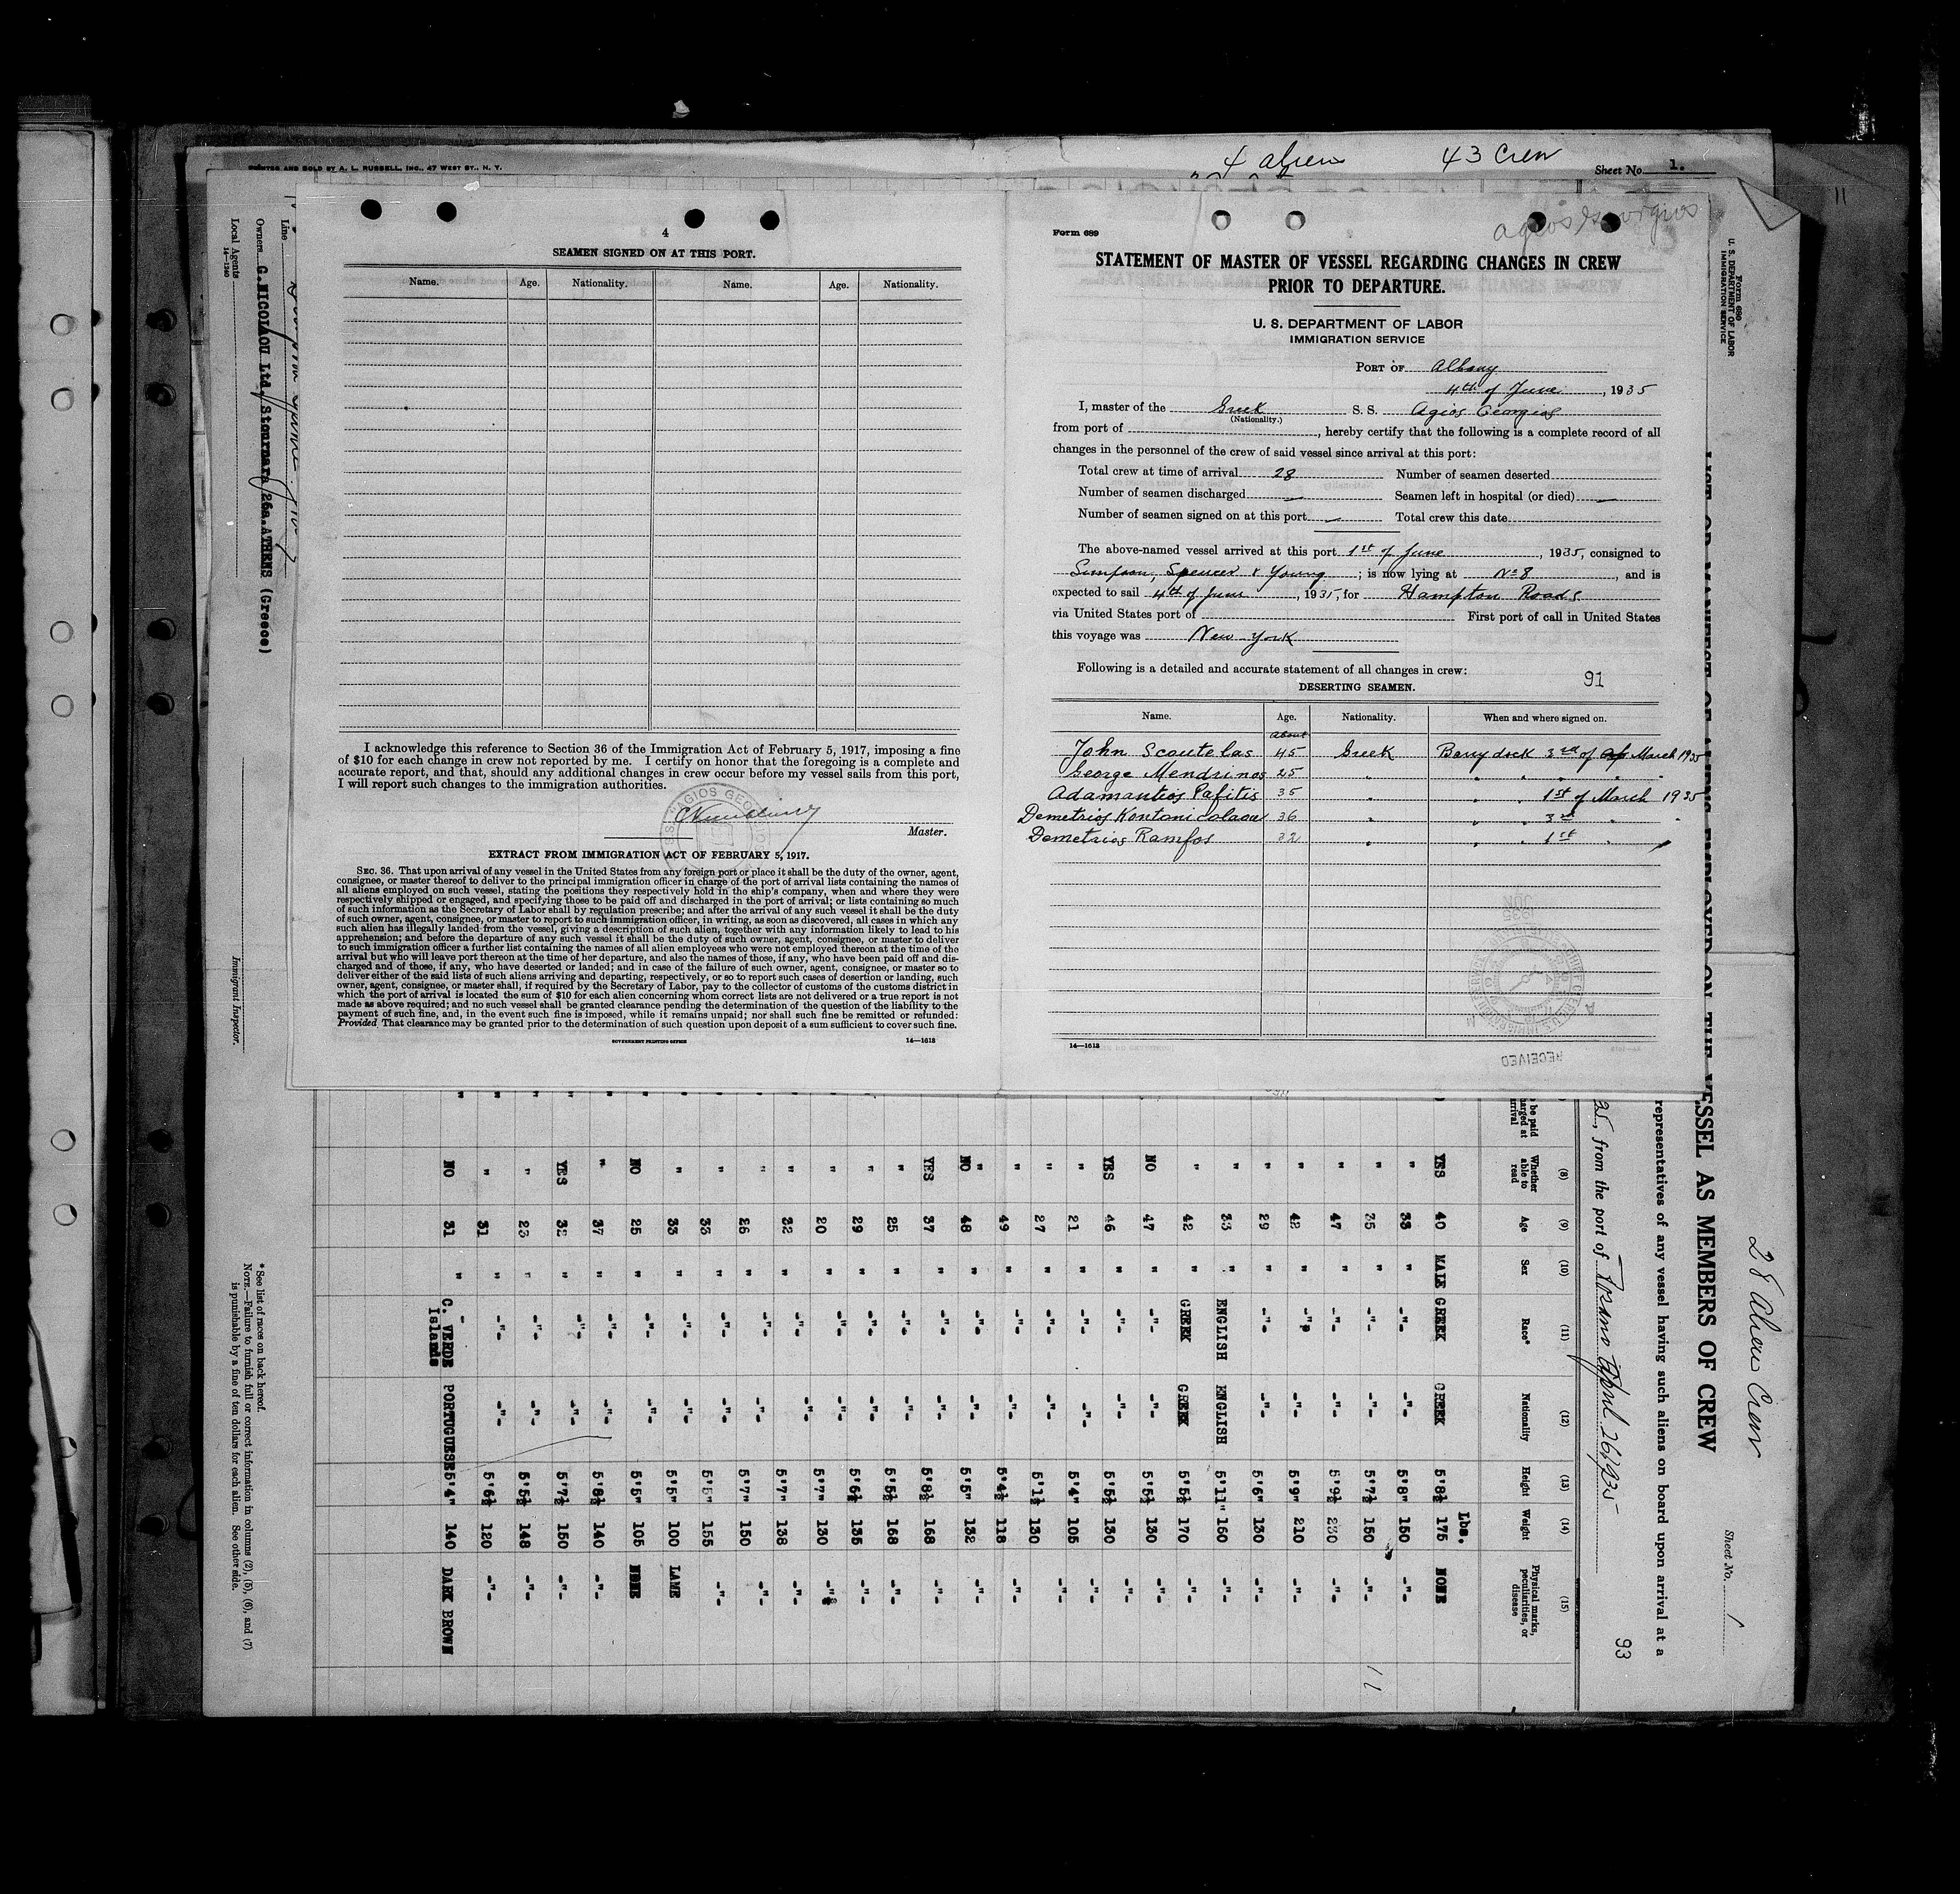 PRINTED AND SOLD BY A. L. RUSSELL, INC., 47 WEST ST., N. Y.
4 alien
43 Crew
Sheet No. 1.
4
SEAMEN SIGNED ON AT THIS PORT.
Name. Age. Nationality. Name. Age. Nationality.
I acknowledge this reference to Section 36 of the Immigration Act of February 5, 1917, imposing a fine
of $10 for each change in crew not reported by me. I certify on honor that the foregoing is a complete and
accurate report, and that, should any additional changes in crew occur before my vessel sails from this port,
I will report such changes to the immigration authorities.
Master.
EXTRACT FROM IMMIGRATION ACT OF FEBRUARY 5, 1917.
SEC. 36. That upon arrival of any vessel in the United States from any foreign port or place it shall be the duty of the owner, agent,
consignee, or master thereof to deliver to the principal immigration officer in charge of the port of arrival lists containing the names of
all aliens employed on such vessel, stating the positions they respectively hold in the ship's company, when and where they were
respectively shipped or engaged, and specifying those to be paid off and discharged in the port of arrival; or lists containing so much
of such information as the Secretary of Labor shall by regulation prescribe; and after the arrival of any such vessel it shall be the duty
of such owner, agent, consignee, or master to report to such immigration officer, in writing, as soon as discovered, all cases in which any
such alien has illegally landed from the vessel, giving a description of such alien, together with any information likely to lead to his
apprehension; and before the departure of any such vessel it shall be the duty of such owner, agent, consignee, or master to deliver
to such immigration officer a further list containing the names of all alien employees who were not employed thereon at the time of the
arrival but who will leave port thereon at the time of her departure, and also the names of those, if any, who have been paid off and dis-
charged and of those, if any, who have deserted or landed; and in case of the failure of such owner, agent, consignee, or master so to
deliver either of the said lists of such aliens arriving and departing, respectively, or so to report such cases of desertion or landing, such
owner, agent, consignee, or master shall, if required by the Secretary of Labor, pay to the collector of customs of the customs district in
which the port of arrival is located the sum of $10 for each alien concerning whom correct lists are not delivered or a true report is not
made as above required; and no such vessel shall be granted clearance pending the determination of the question of the liability to the
payment of such fine, and, in the event such fine is imposed, while it remains unpaid; nor shall such fine be remitted or refunded:
Provided That clearance may be granted prior to the determination of such question upon deposit of a sum sufficient to cover such fine.
GOVERNMENT PRINTING OFFICE 14—1613
Form 689
agios Georgios
STATEMENT OF MASTER OF VESSEL REGARDING CHANGES IN CREW
PRIOR TO DEPARTURE.
U. S. DEPARTMENT OF LABOR
IMMIGRATION SERVICE
PORT OF Albany
4th of June, 1935
I, master of the Greek S. S. Agios Georgios
(Nationality.)
from port of , hereby certify that the following is a complete record of all
changes in the personnel of the crew of said vessel since arrival at this port:
Total crew at time of arrival 28 Number of seamen deserted
Number of seamen discharged — Seamen left in hospital (or died) —
Number of seamen signed on at this port — Total crew this date
The above-named vessel arrived at this port 1st of June, 1935, consigned to
Simpson, Spencer & Young ; is now lying at No 8, and is
expected to sail 4th of June, 1935, for Hampton Roads
via United States port of First port of call in United States
this voyage was New York
Following is a detailed and accurate statement of all changes in crew:
91
DESERTING SEAMEN.
Name. Age. Nationality. When and where signed on.
about
John Scoutelas 45 Greek Barry dock 3rd of March 1935
George Mendrinos 25 " " " " "
Adamantios Pafitis 35 " " " 1st of March 1935
Demetrios Kontonicolaou 36 " " " 3rd " "
Demetrios Ramfos 32 " " " 1st " "
1935
JUN
RECEIVED
14—1613
Line
Owners G.NICOLAOU Ltd, Stournara 26a.ATHENS (Greece)
Local Agents
14—1240
Immigrant Inspector.
* See list of races on back hereof.
NOTE.—Failure to furnish full or correct information in columns (2), (5), (6), and (7)
is punishable by a fine of ten dollars for each alien. See other side.
Form 680
U. S. DEPARTMENT OF LABOR
IMMIGRATION SERVICE
28 Alien Crew
Sheet No. 1
VESSEL AS MEMBERS OF CREW
representatives of any vessel having such aliens on board upon arrival at a
, from the port of Rosario April 26/935
93
(8) Whether able to read (9) Age (10) Sex (11) Race* (12) Nationality (13) Height (14) Weight (15) Physical marks, peculiarities, or disease
Lbs.
YES 40 MALE GREEK GREEK 5'8½ 175 NONE
" 33 " -"- -"- 5'8" 150 -"-
" 35 " -"- -"- 5'7½ 150 -"-
" 47 " -"- -"- 5'9½ 230 -"-
" 42 " -"- -"- 5'9" 210 -"-
" 29 " -"- -"- 5'6" 130 -"-
" 33 " ENGLISH ENGLISH 5'11" 160 -"-
" 42 " GREEK GREEK 5'5½ 170 -"-
NO 47 " -"- -"- 5'5½ 130 -"-
YES 46 " -"- -"- 5'5½ 130 -"-
" 21 " -"- -"- 5'4" 105 -"-
" 27 " -"- -"- 5'1½ 130 -"-
" 49 " -"- -"- 5'4½ 118 -"-
NO 48 " -"- -"- 5'5" 132 -"-
YES 37 " -"- -"- 5'8½ 168 -"-
" 25 " -"- -"- 5'5½ 168 -"-
" 29 " -"- -"- 5'6½ 135 -"-
" 20 " -"- -"- 5'7" 130 -"-
" 32 " -"- -"- 5'7" 138 -"-
" 26 " -"- -"- 5'7" 150 -"-
" 33 " -"- -"- 5'5" 155 -"-
" 33 " -"- -"- 5'5" 100 LAME
NO 25 " -"- -"- 5'5" 105 NONE
" 37 " -"- -"- 5'8½ 140 -"-
YES 32 " -"- -"- 5'7½ 150 -"-
" 23 " -"- -"- 5'5½ 148 -"-
" 31 " -"- -"- 5'6½ 120 -"-
NO 31 " C. VERDE Islands PORTUGUESE 5'4" 140 DARK BROWN
11